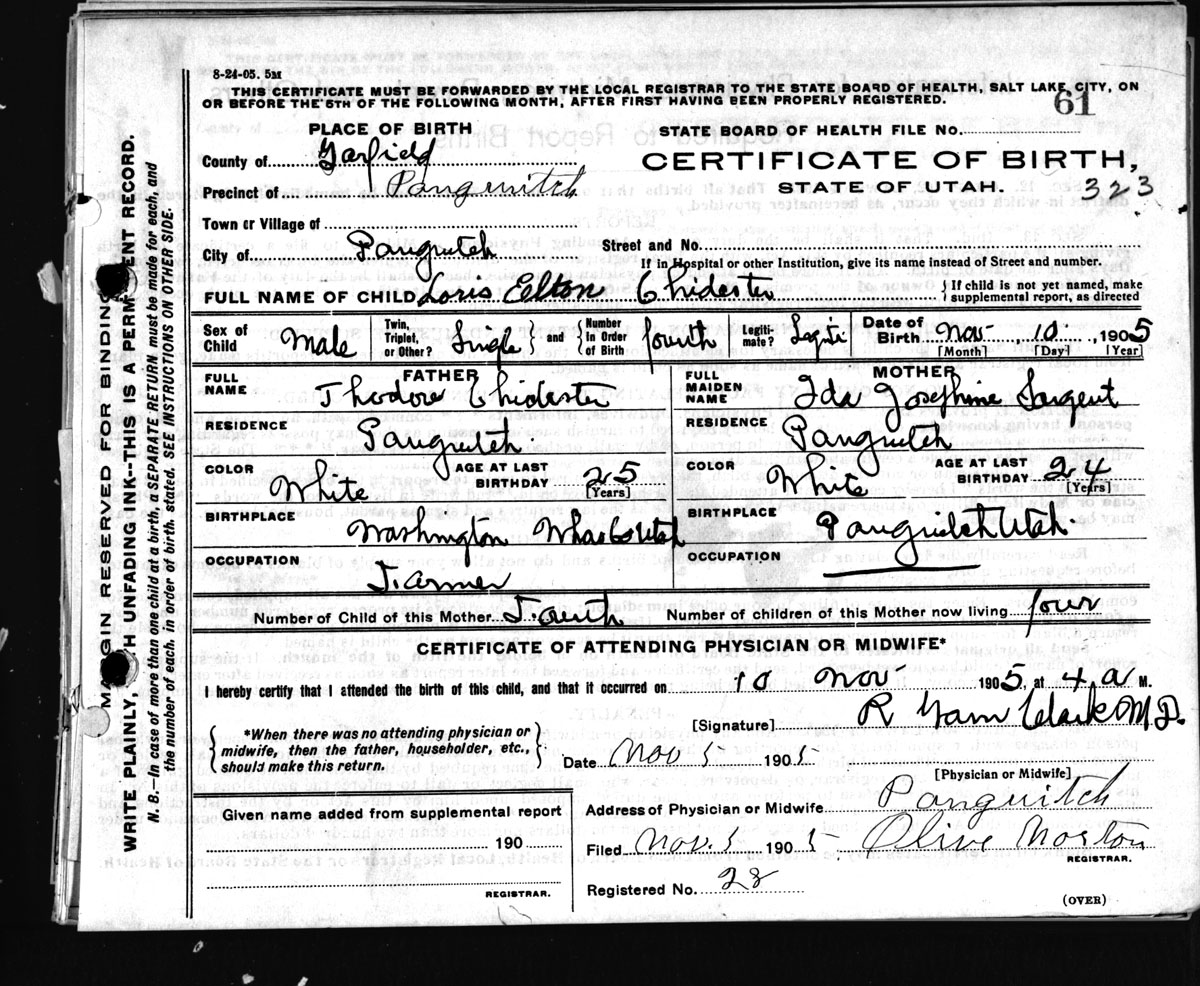 8-24-05. 5M
THIS CERTIFICATE MUST BE FORWARDED BY THE LOCAL REGISTRAR TO THE STATE BOARD OF HEALTH, SALT LAKE CITY, ON
OR BEFORE THE 5TH OF THE FOLLOWING MONTH, AFTER FIRST HAVING BEEN PROPERLY REGISTERED.
61
PLACE OF BIRTH
STATE BOARD OF HEALTH FILE No.
County of Garfield
CERTIFICATE OF BIRTH,
Precinct of Panguitch
STATE OF UTAH. 323
Town or Village of
City of Panguitch Street and No.
If in Hospital or other Institution, give its name instead of Street and number.
FULL NAME OF CHILD Loris Elton Chidester { If child is not yet named, make
supplemental report, as directed
Sex of Child Male Twin, Triplet, or Other? Single and Number in Order of Birth fourth Legitimate? Legiti Date of Birth Nov 10, 1905
[Month] [Day] [Year]
FATHER
FULL NAME Theodore Chidester
RESIDENCE Panguitch
COLOR White AGE AT LAST BIRTHDAY 25 [Years]
BIRTHPLACE Washington Utah
OCCUPATION Farmer
MOTHER
FULL MAIDEN NAME Ida Josephine Sargent
RESIDENCE Panguitch
COLOR White AGE AT LAST BIRTHDAY 24 [Years]
BIRTHPLACE Panguitch Utah.
OCCUPATION
Number of Child of this Mother Fourth Number of children of this Mother now living four
CERTIFICATE OF ATTENDING PHYSICIAN OR MIDWIFE*
I hereby certify that I attended the birth of this child, and that it occurred on 10 Nov 1905, at 4 a M.
{ *When there was no attending physician or
midwife, then the father, householder, etc.,
should make this return. }
[Signature] R Clark M.D.
Date Nov 5 1905
[Physician or Midwife]
Given name added from supplemental report
190
REGISTRAR.
Address of Physician or Midwife Panguitch
Filed Nov. 5 1905 Olive Norton
REGISTRAR.
Registered No. 28
(OVER)
MARGIN RESERVED FOR BINDING
WRITE PLAINLY, WITH UNFADING INK--THIS IS A PERMANENT RECORD.
N. B.—In case of more than one child at a birth, a SEPARATE RETURN must be made for each, and
the number of each, in order of birth, stated. SEE INSTRUCTIONS ON OTHER SIDE.